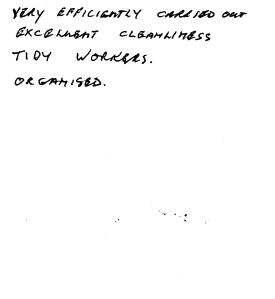 VERY EFFICIENTLY CARRIED OUT
EXCELLENT CLEANLINESS
TIDY WORKERS.
ORGANISED.